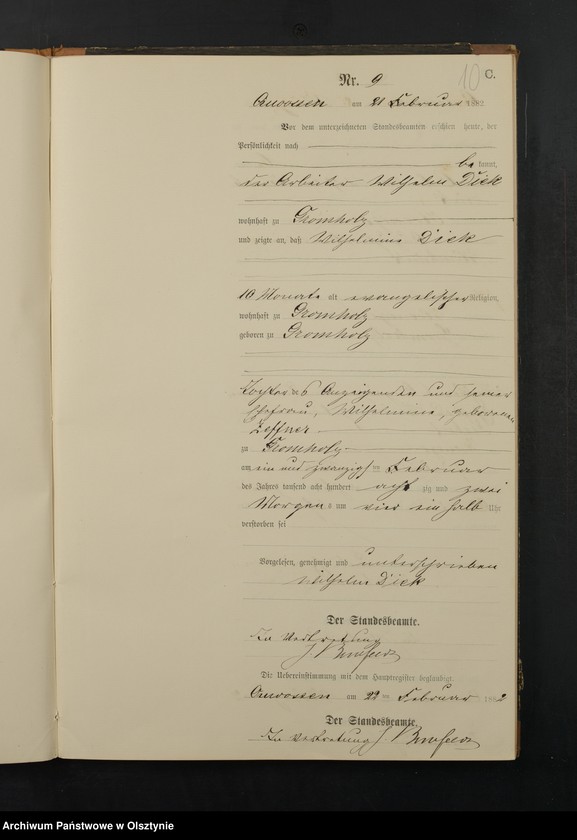 10 C.
Nr. 9
am 21 Februar 1882
Vor dem unterzeichneten Standesbeamten erschien heute, der
Persönlichkeit nach
be kannt,
der Arbeiter Wilhelm Dick
wohnhaft zu Gromholz
und zeigte an, daß Wilhelmine Dick
10 Monate alt evangelischer Religion,
wohnhaft zu Gromholz
geboren zu Gromholz
Tochter des Anzeigenden und seiner
Ehefrau, Wilhelmine, geborenen
zu Gromholz
am ein und zwanzigsten Februar
des Jahres tausend acht hundert acht zig und zwei
Morgen s um vier ein halb Uhr
verstorben sei
Vorgelesen, genehmigt und unterschrieben
Wilhelm Dick
Der Standesbeamte.
In Vertretung
Die Uebereinstimmung mit dem Hauptregister beglaubigt.
am 22 ten Februar 1882
Der Standesbeamte.
In Vertretung
Archiwum Państwowe w Olsztynie